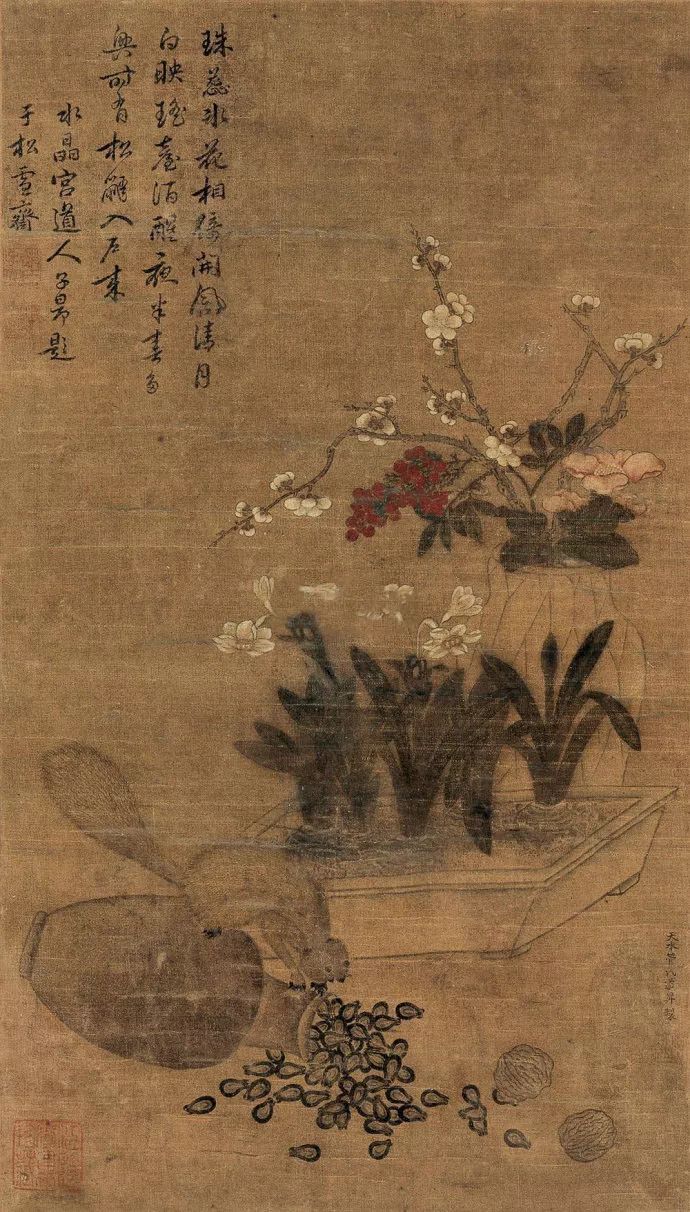 珠蕊冰花相接開風清月
白映瑤臺酒醒夜半春多
興時有松鼯入户來
水晶宮道人子昂題
于松雪齋
天水管昇製